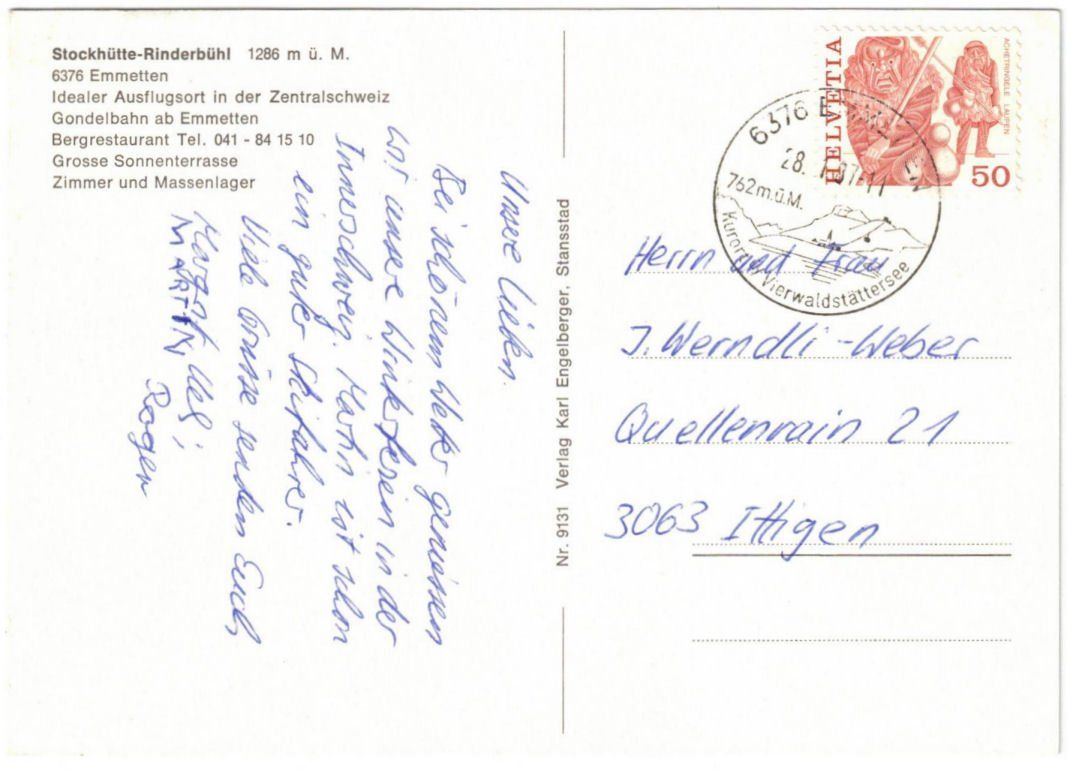 Stockhütte-Rinderbühl 1286 m ü. M.
6376 Emmetten
Idealer Ausflugsort in der Zentralschweiz
Gondelbahn ab Emmetten
Bergrestaurant Tel. 041 - 84 15 10
Grosse Sonnenterrasse
Zimmer und Massenlager
Unsere Lieben.
Bei schönem Wetter geniessen
wir unsere Winkferien in der
Innerschweiz. Martin ist schon
ein guter Skifahrer.
Viele Grüsse senden Euch
Margrit Ueli
MARTIN
Roger
Nr. 9131 Verlag Karl Engelberger, Stansstad
HELVETIA
ACHETRINGELE LAUPEN
50
6376 EMMETTEN
28. 1.87-11
762 m.ü.M.
Kurort am Vierwaldstättersee
Herrn und Frau
J. Werndli-Weber
Quellenrain 21
3063 Ittigen